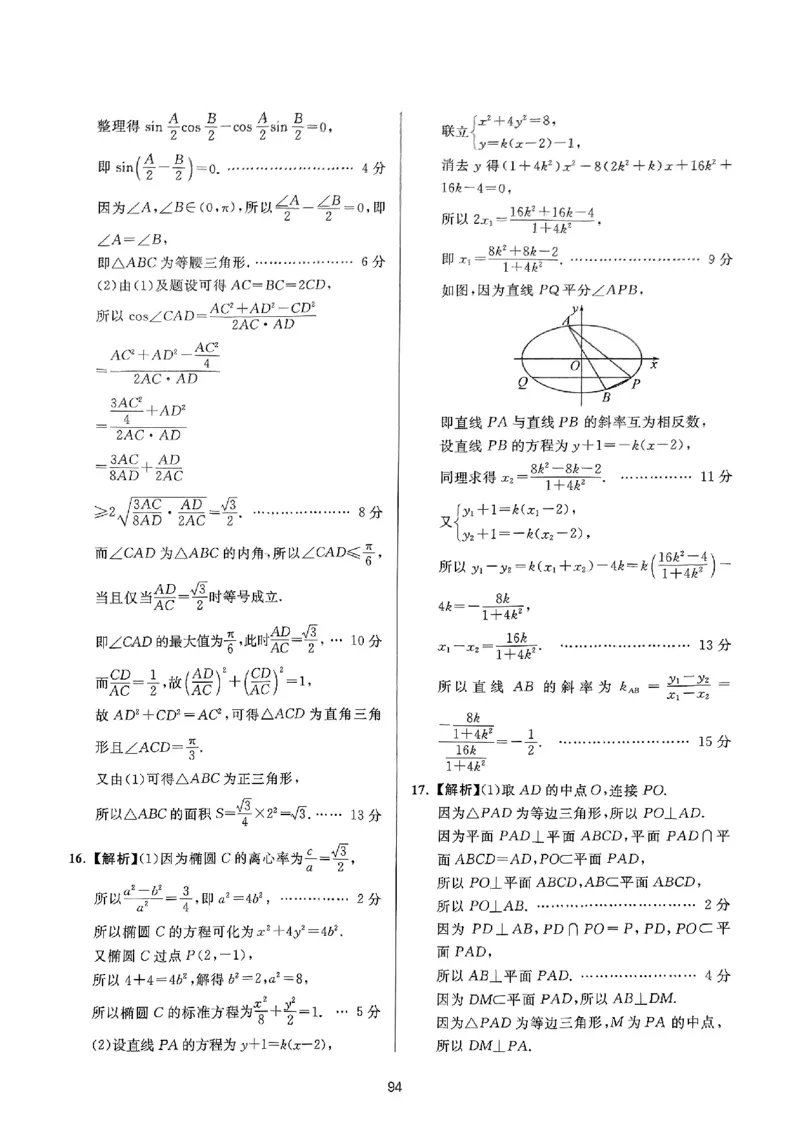 整理得 sin A/2 cos B/2 − cos A/2 sin B/2 = 0,
即 sin(A/2 − B/2) = 0. ………………………… 4 分
因为∠A,∠B∈(0,π),所以 ∠A/2 − ∠B/2 = 0,即
∠A=∠B,
即△ABC 为等腰三角形. ………………… 6 分
(2)由(1)及题设可得 AC=BC=2CD,
所以 cos∠CAD = (AC²+AD²−CD²)/(2AC·AD)
= (AC²+AD²−AC²/4)/(2AC·AD)
= (3AC²/4+AD²)/(2AC·AD)
= 3AC/8AD + AD/2AC
≥2√(3AC/8AD · AD/2AC) = √3/2. ………………… 8 分
而∠CAD 为△ABC 的内角,所以∠CAD≤π/6,
当且仅当 AD/AC = √3/2 时等号成立.
即∠CAD 的最大值为 π/6,此时 AD/AC = √3/2, … 10 分
而 CD/AC = 1/2,故 (AD/AC)² + (CD/AC)² = 1,
故 AD²+CD²=AC²,可得△ACD 为直角三角
形且∠ACD=π/3.
又由(1)可得△ABC 为正三角形,
所以△ABC 的面积 S=√3/4×2²=√3. …… 13 分
16.【解析】(1)因为椭圆 C 的离心率为 c/a = √3/2,
所以 (a²−b²)/a² = 3/4,即 a²=4b², …………… 2 分
所以椭圆 C 的方程可化为 x²+4y²=4b².
又椭圆 C 过点 P(2,−1),
所以 4+4=4b²,解得 b²=2,a²=8,
所以椭圆 C 的标准方程为 x²/8 + y²/2 = 1. … 5 分
(2)设直线 PA 的方程为 y+1=k(x−2),
联立{x²+4y²=8,
y=k(x−2)−1,
消去 y 得(1+4k²)x²−8(2k²+k)x+16k²+
16k−4=0,
所以 2x₁ = (16k²+16k−4)/(1+4k²),
即 x₁ = (8k²+8k−2)/(1+4k²). ……………………… 9 分
如图,因为直线 PQ 平分∠APB,
y
A
O
x
Q
P
B
即直线 PA 与直线 PB 的斜率互为相反数,
设直线 PB 的方程为 y+1=−k(x−2),
同理求得 x₂ = (8k²−8k−2)/(1+4k²). …………… 11 分
又{y₁+1=k(x₁−2),
y₂+1=−k(x₂−2),
所以 y₁−y₂=k(x₁+x₂)−4k=k((16k²−4)/(1+4k²))−
4k=−8k/(1+4k²),
x₁−x₂ = 16k/(1+4k²). ……………………… 13 分
所以直线 AB 的斜率为 k_AB = (y₁−y₂)/(x₁−x₂) =
(−8k/(1+4k²))/(16k/(1+4k²)) = −1/2. ……………………… 15 分
17.【解析】(1)取 AD 的中点 O,连接 PO.
因为△PAD 为等边三角形,所以 PO⊥AD.
因为平面 PAD⊥平面 ABCD,平面 PAD∩平
面 ABCD=AD,PO⊂平面 PAD,
所以 PO⊥平面 ABCD,AB⊂平面 ABCD,
所以 PO⊥AB. …………………………… 2 分
因为 PD⊥AB,PD∩PO=P,PD,PO⊂平
面 PAD,
所以 AB⊥平面 PAD. …………………… 4 分
因为 DM⊂平面 PAD,所以 AB⊥DM.
因为△PAD 为等边三角形,M 为 PA 的中点,
所以 DM⊥PA.
94